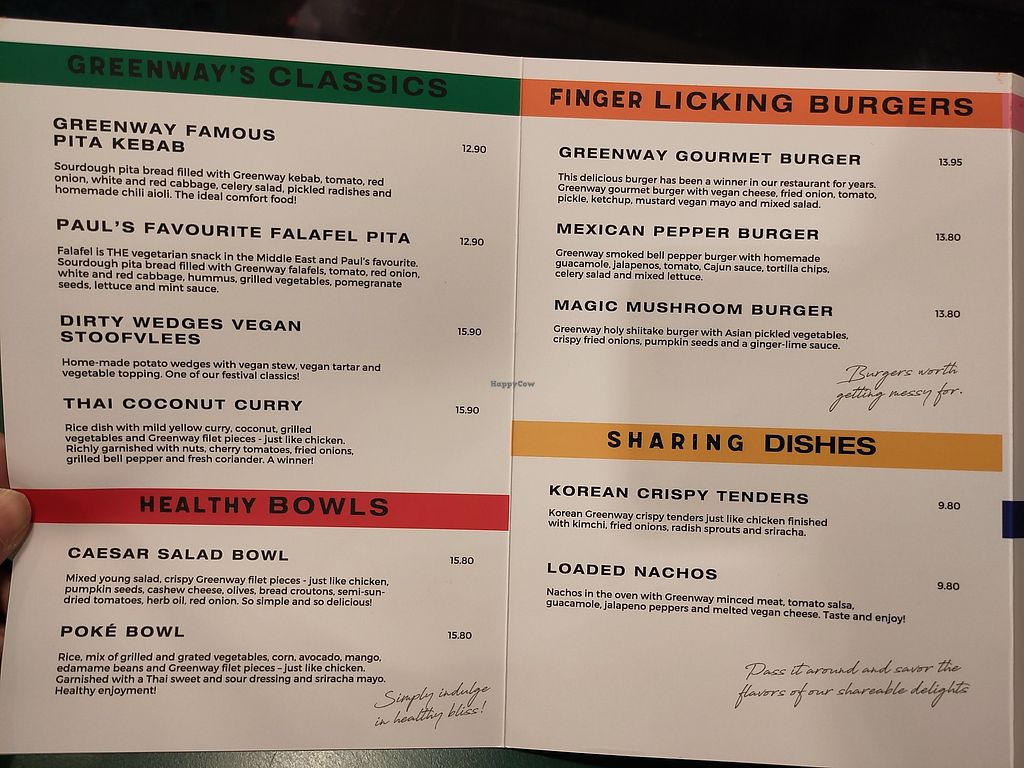 GREENWAY'S CLASSICS
GREENWAY FAMOUS
PITA KEBAB
12.90
Sourdough pita bread filled with Greenway kebab, tomato, red
onion, white and red cabbage, celery salad, pickled radishes and
homemade chili aioli. The ideal comfort food!
PAUL'S FAVOURITE FALAFEL PITA
12.90
Falafel is THE vegetarian snack in the Middle East and Paul's favourite.
Sourdough pita bread filled with Greenway falafels, tomato, red onion,
white and red cabbage, hummus, grilled vegetables, pomegranate
seeds, lettuce and mint sauce.
DIRTY WEDGES VEGAN
STOOFVLEES
15.90
Home-made potato wedges with vegan stew, vegan tartar and
vegetable topping. One of our festival classics!
THAI COCONUT CURRY
15.90
Rice dish with mild yellow curry, coconut, grilled
vegetables and Greenway filet pieces - just like chicken.
Richly garnished with nuts, cherry tomatoes, fried onions,
grilled bell pepper and fresh coriander. A winner!
HEALTHY BOWLS
CAESAR SALAD BOWL
15.80
Mixed young salad, crispy Greenway filet pieces - just like chicken,
pumpkin seeds, cashew cheese, olives, bread croutons, semi-sun-
dried tomatoes, herb oil, red onion. So simple and so delicious!
POKÉ BOWL
15.80
Rice, mix of grilled and grated vegetables, corn, avocado, mango,
edamame beans and Greenway filet pieces – just like chicken.
Garnished with a Thai sweet and sour dressing and sriracha mayo.
Healthy enjoyment!
Simply indulge
in healthy bliss!
FINGER LICKING BURGERS
GREENWAY GOURMET BURGER
13.95
This delicious burger has been a winner in our restaurant for years.
Greenway gourmet burger with vegan cheese, fried onion, tomato,
pickle, ketchup, mustard vegan mayo and mixed salad.
MEXICAN PEPPER BURGER
13.80
Greenway smoked bell pepper burger with homemade
guacamole, jalapenos, tomato, Cajun sauce, tortilla chips,
celery salad and mixed lettuce.
MAGIC MUSHROOM BURGER
13.80
Greenway holy shiitake burger with Asian pickled vegetables,
crispy fried onions, pumpkin seeds and a ginger-lime sauce.
Burgers worth
getting messy for.
HappyCow
SHARING DISHES
KOREAN CRISPY TENDERS
9.80
Korean Greenway crispy tenders just like chicken finished
with kimchi, fried onions, radish sprouts and sriracha.
LOADED NACHOS
9.80
Nachos in the oven with Greenway minced meat, tomato salsa,
guacamole, jalapeno peppers and melted vegan cheese. Taste and enjoy!
Pass it around and savor the
flavors of our shareable delights